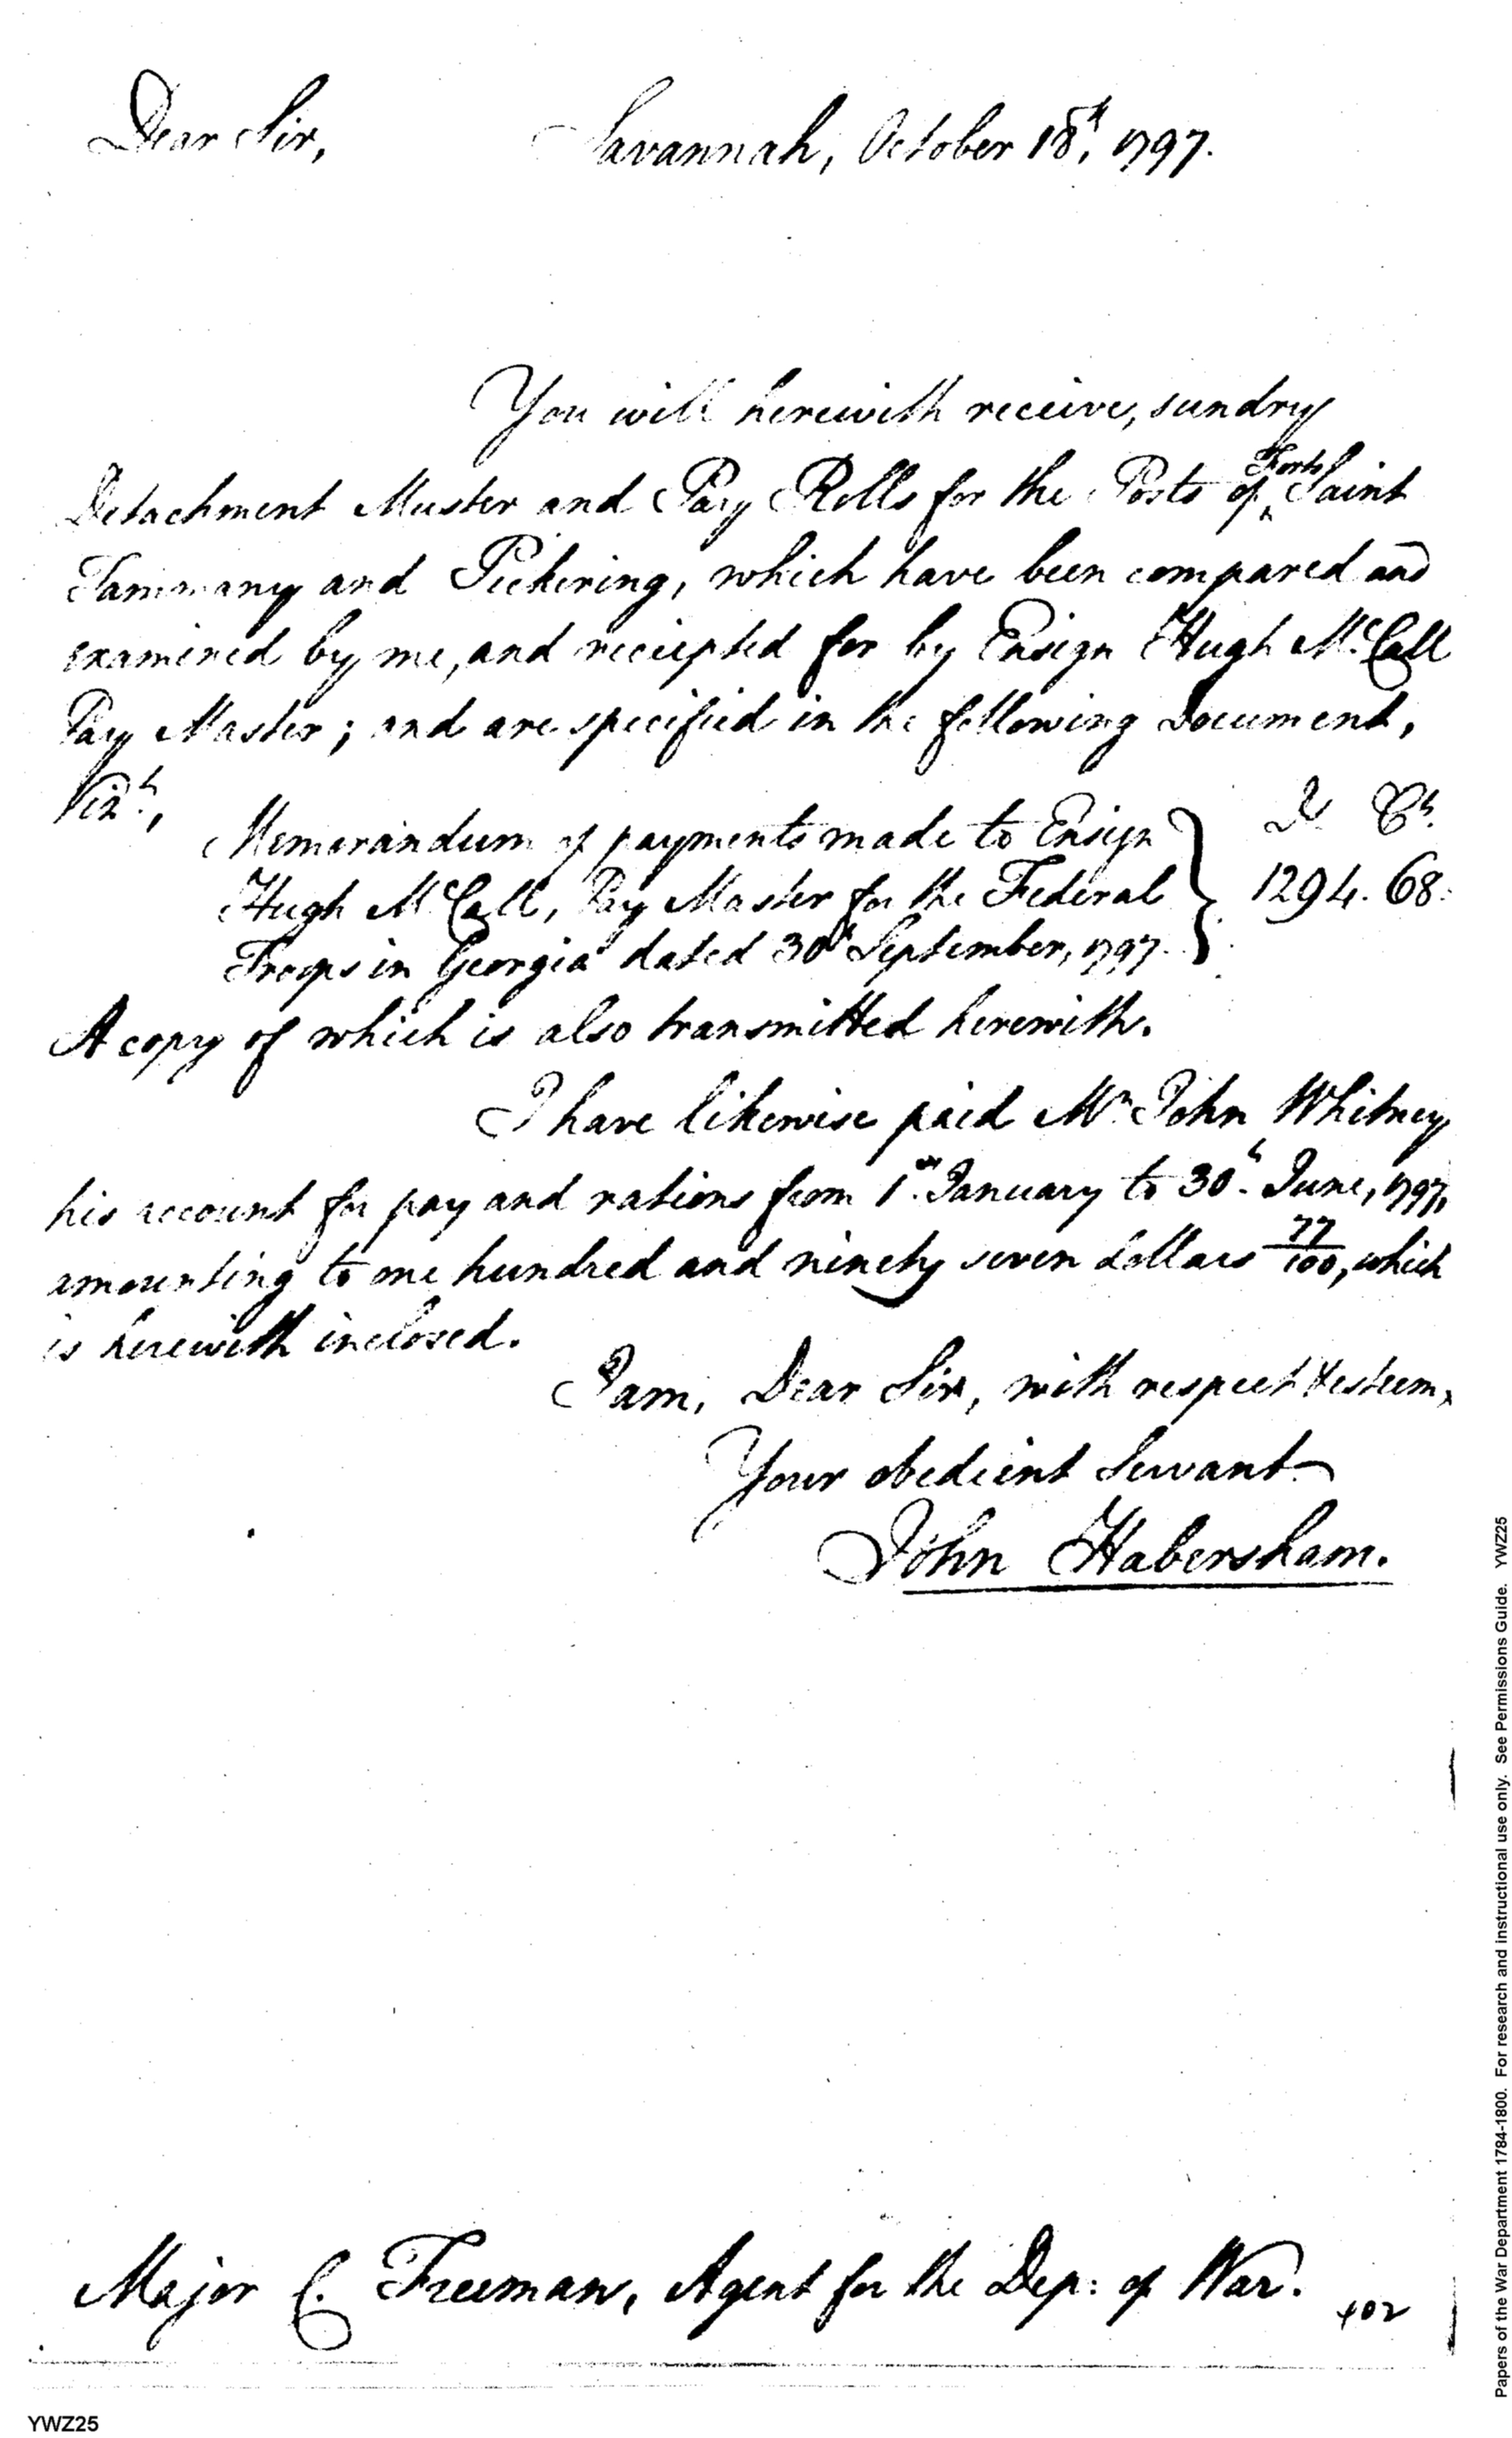 Dear Sir, Savannah, October 18th, 1797.
You will herewith receive, sundry
Detachment Muster and Pay Rolls for the Posts of Forts Saint
Tammany and Pickering, which have been compared and
examined by me, and reciepted for by Ensign Hugh McCall
Pay Master; and are specified in the following Document,
Vizt.,
Memorandum of payments made to Ensign
Hugh McCall, Pay Master for the Federal
Troops in Georgia dated 30th September, 1797.
D Cts.
1294. 68.
A copy of which is also transmitted herewith.
I have likewise paid Mr. John Whitney
his account for pay and rations from 1st. January to 30th. June, 1797,
amounting to one hundred and ninety seven dollars 77/100, which
is herewith inclosed.
I am, Dear Sir, with respect & esteem,
Your obedient Servant
John Habersham.
Major C. Freeman, Agent for the Dep: of War.
402
YWZ25
Papers of the War Department 1784-1800. For research and instructional use only. See Permissions Guide. YWZ25